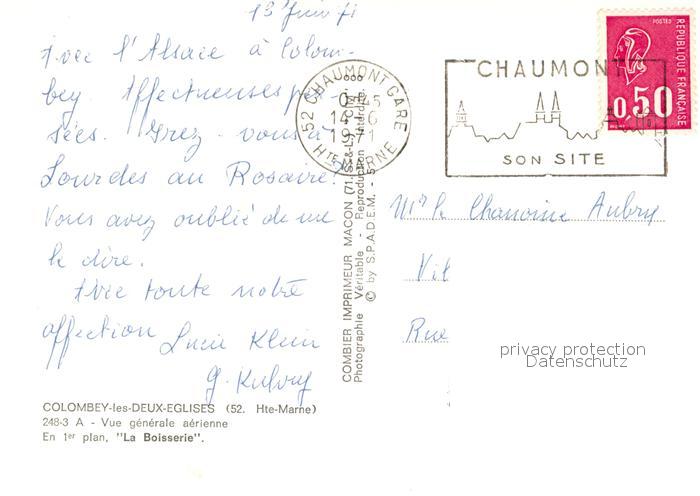 13 Juin 71
Avec l'Alsace à Colom-
bey Affectueuses pen-
sées. Irez-vous à
Lourdes au Rosaire?
Vous avez oublié de me
le dire.
Avec toute notre
affection Lucie Klein
G.
COLOMBEY-les-DEUX-EGLISES (52. Hte-Marne)
248-3 A - Vue générale aérienne
En 1er plan, "La Boisserie".
COMBIER IMPRIMEUR MACON (71. S.-&-L.) "CIM"
Photographie Véritable - Reproduction Interdite
© by S.P.A.D.E.M. - 5
52 CHAUMONT GARE
14-6
1971
Hte MARNE
CHAUMONT
SON SITE
POSTES
REPUBLIQUE FRANÇAISE
0,50
Mr le Chanoine Aubry
Vil
Rue
privacy protection
Datenschutz